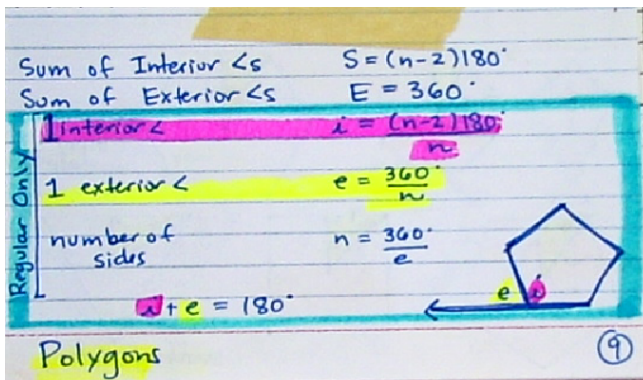 Sum of Interior <s S = (n-2)180°
Sum of Exterior <s E = 360°
Regular Only
1 interior < i = (n-2)180° / n
1 exterior < e = 360° / n
number of sides n = 360° / e
i + e = 180°
e i
Polygons
9